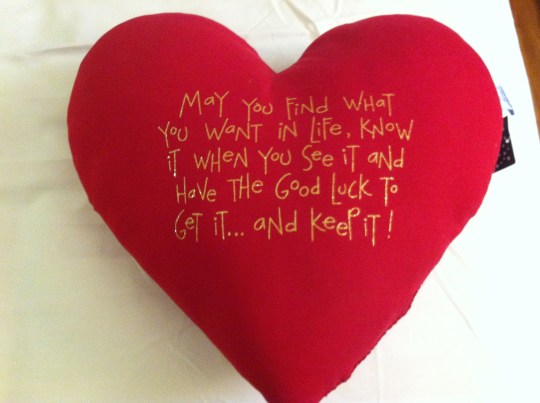 May you find what
you want in life, know
it when you see it and
Have the Good Luck to
Get it... and keep it!